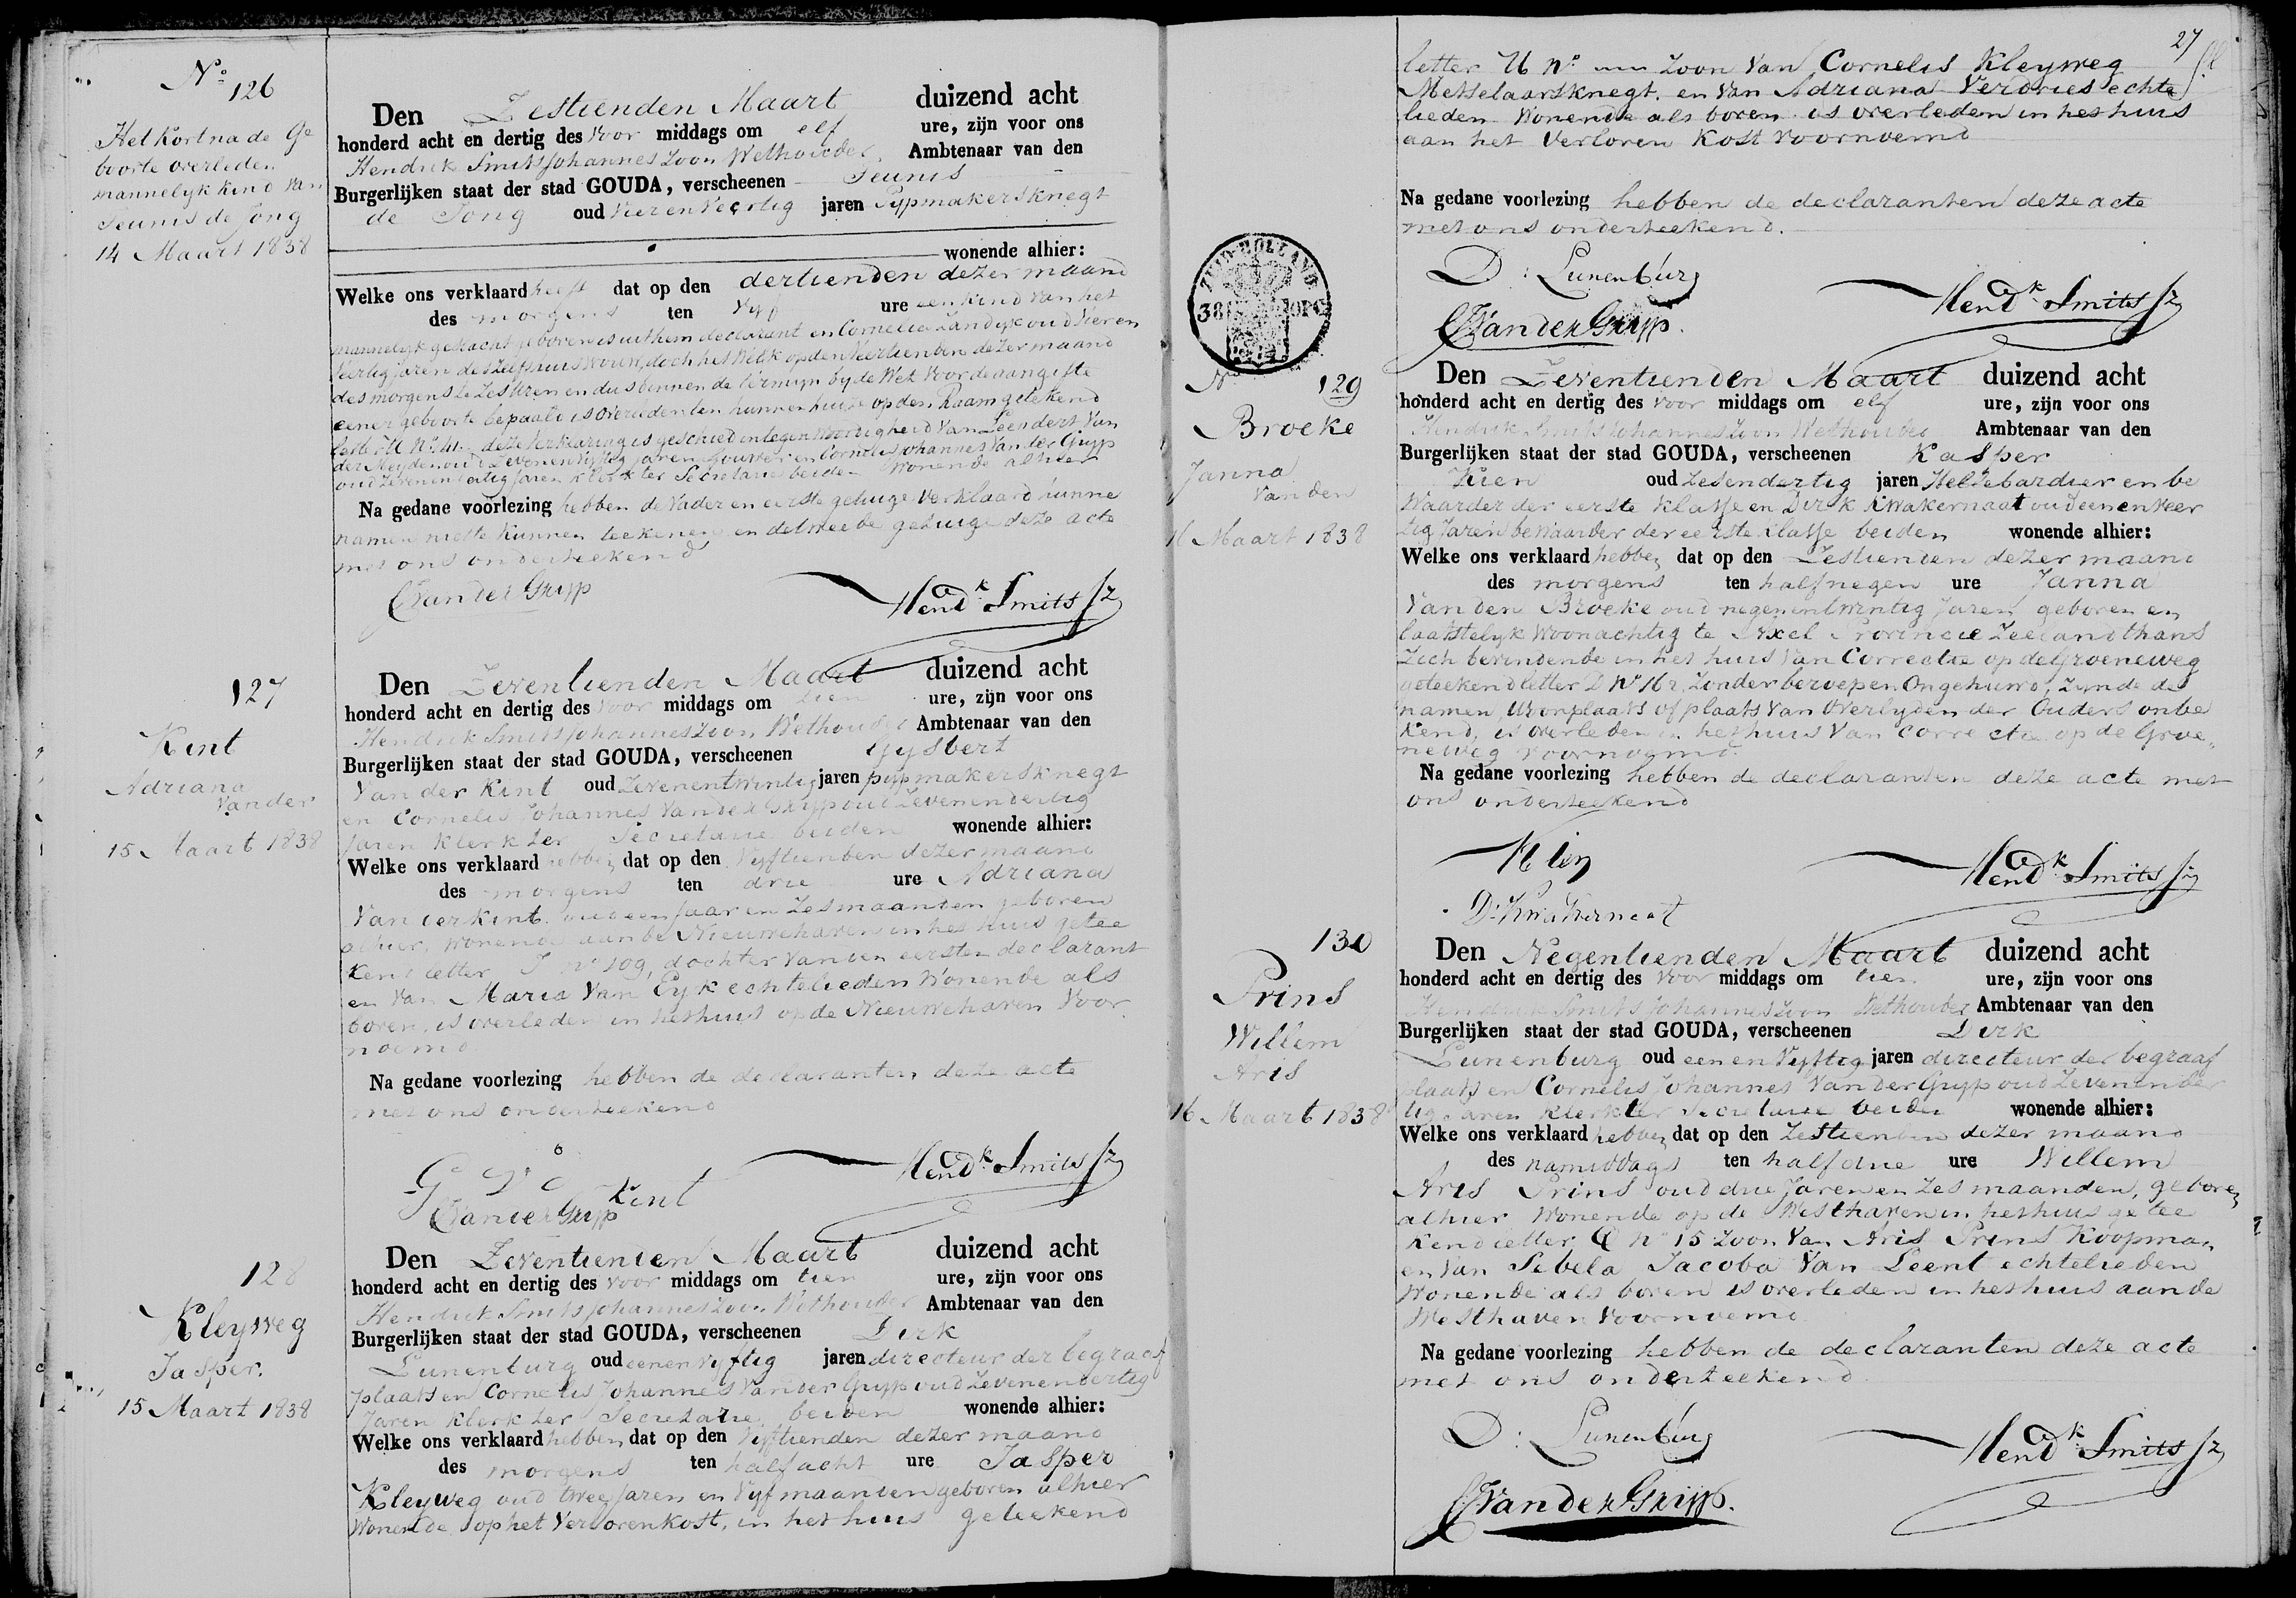 No 126
Het kort na de Ge
boorte overleden
mannelyk kind van
Teunis de Jong
14 Maart 1838
Den Zestienden Maart duizend acht
honderd acht en dertig des voor middags om elf ure, zijn voor ons
Hendrik Smits Johannes Zoon Wethouder Ambtenaar van den
Burgerlijken staat der stad GOUDA, verscheenen Teunis
de Jong oud vier en veertig jaren Pypmakersknegt
wonende alhier:
Welke ons verklaard heeft dat op den dertienden dezer maand
des morgens ten vyf ure een kind van het
mannelyk geslacht geboren is uit hem declarant en Cornelia Zandyk oud vier en
veertig jaren deszelfs huisvrouw, doch het welk op den veertienden dezer maand
des morgens te zes uren en dus binnen de termyn by de Wet voor de aangifte
eener geboorte bepaald is overleden ten hunnen huize op den Raam getekend
letter U No 41. deze verklaring is geschied in tegenwoordigheid van Leendert van
der Neyden oud zeven en vyftig jaren, sjouwer en Cornelis Johannes van der Gryp
oud zeven en dertig jaren klerk ter Secretarie beiden wonende alhier
Na gedane voorlezing hebben de vader en eerste getuige verklaard hunne
namen niet te kunnen teekenen en de tweede getuige deze acte
met ons onderteekend
CJVan der Gryp
Hendk Smits Jz
127
Kint
Adriana
van der
15 Maart 1838
Den Zeventienden Maart duizend acht
honderd acht en dertig des voor middags om tien ure, zijn voor ons
Hendrik Smits Johannes Zoon Wethouder Ambtenaar van den
Burgerlijken staat der stad GOUDA, verscheenen Gysbert
van der Kint oud zeven en twintig jaren pypmakersknegt
en Cornelis Johannes van der Gryp oud zeven en dertig
jaren klerk ter Secretarie beiden wonende alhier:
Welke ons verklaard hebben dat op den vyftienden dezer maand
des morgens ten drie ure Adriana
van der Kint oud een jaar en zes maanden geboren
alhier, wonende aan de Nieuwehaven in het huis getee
kend letter I No 109, dochter van den eersten declarant
en van Maria van Eyk echtelieden wonende als
boven, is overleden in het huis op de Nieuwehaven voor
noemd
Na gedane voorlezing hebben de declaranten deze acte
met ons onderteekend
G V D Kint
CJVan der Gryp
Hendk Smits Jz
128
Kleyweg
Jasper.
15 Maart 1838
Den Zeventienden Maart duizend acht
honderd acht en dertig des voor middags om tien ure, zijn voor ons
Hendrik Smits Johannes Zoon Wethouder Ambtenaar van den
Burgerlijken staat der stad GOUDA, verscheenen Dirk
Lunenburg oud een en vyftig jaren directeur der begraaf
plaats en Cornelis Johannes van der Gryp oud zeven en dertig
jaren klerk ter Secretarie beiden wonende alhier:
Welke ons verklaard hebben dat op den vyftienden dezer maand
des morgens ten half acht ure Jasper
Kleyweg oud twee jaren en vyf maanden geboren alhier
wonende op het Verlorenkost, in het huis geteekend
27
letter U No zoon van Cornelis Kleyweg
Metselaarsknegt. en van Adriana Verdries echte
lieden wonende als boven is overleden in het huis
aan het Verloren Kost voornoemd
Na gedane voorlezing hebben de declaranten deze acte
met ons onderteekend.
D: Lunenburg
CJVan der Gryp.
Hendk Smits Jz
ZUID-HOLLAND
38
No 129
Broeke
Janna
van den
16 Maart 1838
Den Zeventienden Maart duizend acht
honderd acht en dertig des voor middags om elf ure, zijn voor ons
Hendrik Smits Johannes Zoon Wethouder Ambtenaar van den
Burgerlijken staat der stad GOUDA, verscheenen Kasper
Klein oud zes en dertig jaren Hellebardier en be
waarder der eerste klasse en Dirk Kwakernaat oud een en veer
tig jaren bewaarder der eerste klasse beiden wonende alhier:
Welke ons verklaard hebben dat op den Zestienden dezer maand
des morgens ten half negen ure Janna
van den Broeke oud negen en twintig jaren geboren en
laatstelyk woonachtig te Axel Provincie Zeeland thans
zich bevindende in het huis van Correctie op de Groeneweg
geteekend letter D No 162, zonder beroep en ongehuwd, zynde de
namen, woonplaats of plaats van overlyden der Ouders onbe
kend, is overleden in het huis van correctie op de Groe„
neweg voornoemd.
Na gedane voorlezing hebben de declaranten deze acte met
ons onderteekend
Klein
D: Kwakernaat
Hendk Smits Jz
130
Prins
Willem
Aris
16 Maart 1838
Den Negentienden Maart duizend acht
honderd acht en dertig des voor middags om tien ure, zijn voor ons
Hendrik Smits Johannes Zoon Wethouder Ambtenaar van den
Burgerlijken staat der stad GOUDA, verscheenen Dirk
Lunenburg oud een en vyftig jaren directeur der begraaf
plaats en Cornelis Johannes van der Gryp oud zeven en der
tig jaren klerk ter Secretarie beiden wonende alhier:
Welke ons verklaard hebben dat op den zestienden dezer maand
des namiddags ten half drie ure Willem
Aris Prins oud drie jaren en zes maanden, geboren
alhier wonende op de Westhaven in het huis getee
kend letter No 15 zoon van Aris Prins Koopman
en van Sebela Jacoba van Leent echtelieden
wonende als boven is overleden in het huis aan de
Westhaven voornoemd
Na gedane voorlezing hebben de declaranten deze acte
met ons onderteekend.
D: Lunenburg
CJVan der Gryp.
Hendk Smits Jz